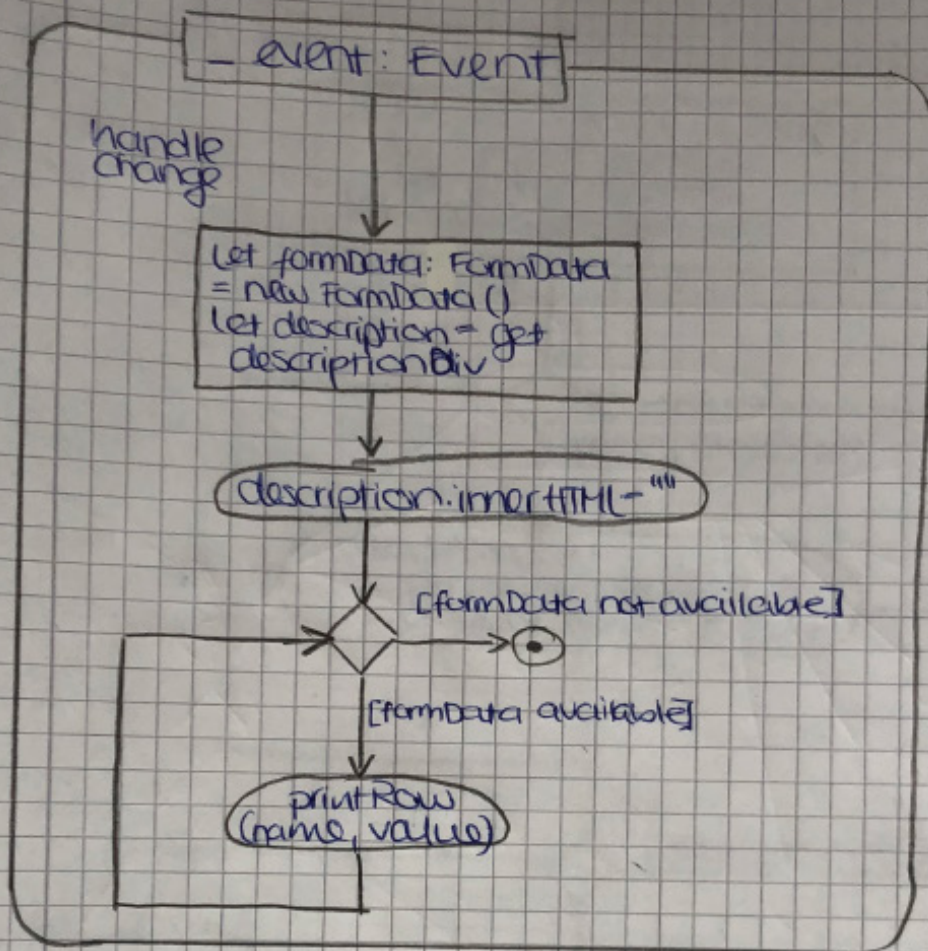 _ event: Event
handle
change
let formData: FormData
= new FormData()
let description = get
descriptionDiv
description.innerHTML = ""
[formData not available]
[formData available]
printRow
(name, value)